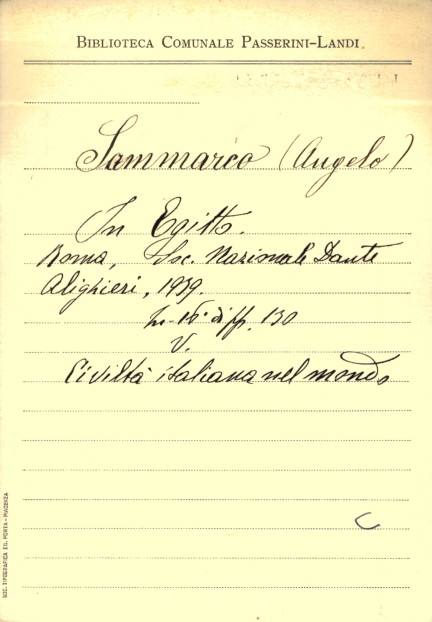 BIBLIOTECA COMUNALE PASSERINI-LANDI
Sammarco (Angelo)
In Egitto.
Roma, Soc. Nazionale Dante
Alighieri, 1939.
In-16° di pp. 130
V.
Civiltà italiana nel mondo
C
SOC. TIPOGRAFICA ED. PORTA - PIACENZA